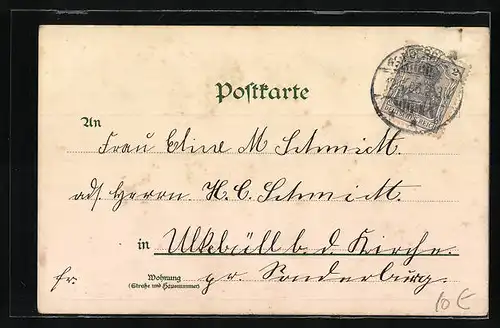 Postkarte
An
Frau Eline M Schmidt.
ads. Herrn H. C. Schmidt.
in Ulkebüll b. d. Kirche.
fr. Wohnung pr. Sonderburg.
(Straße und Hausnummer)
10 €